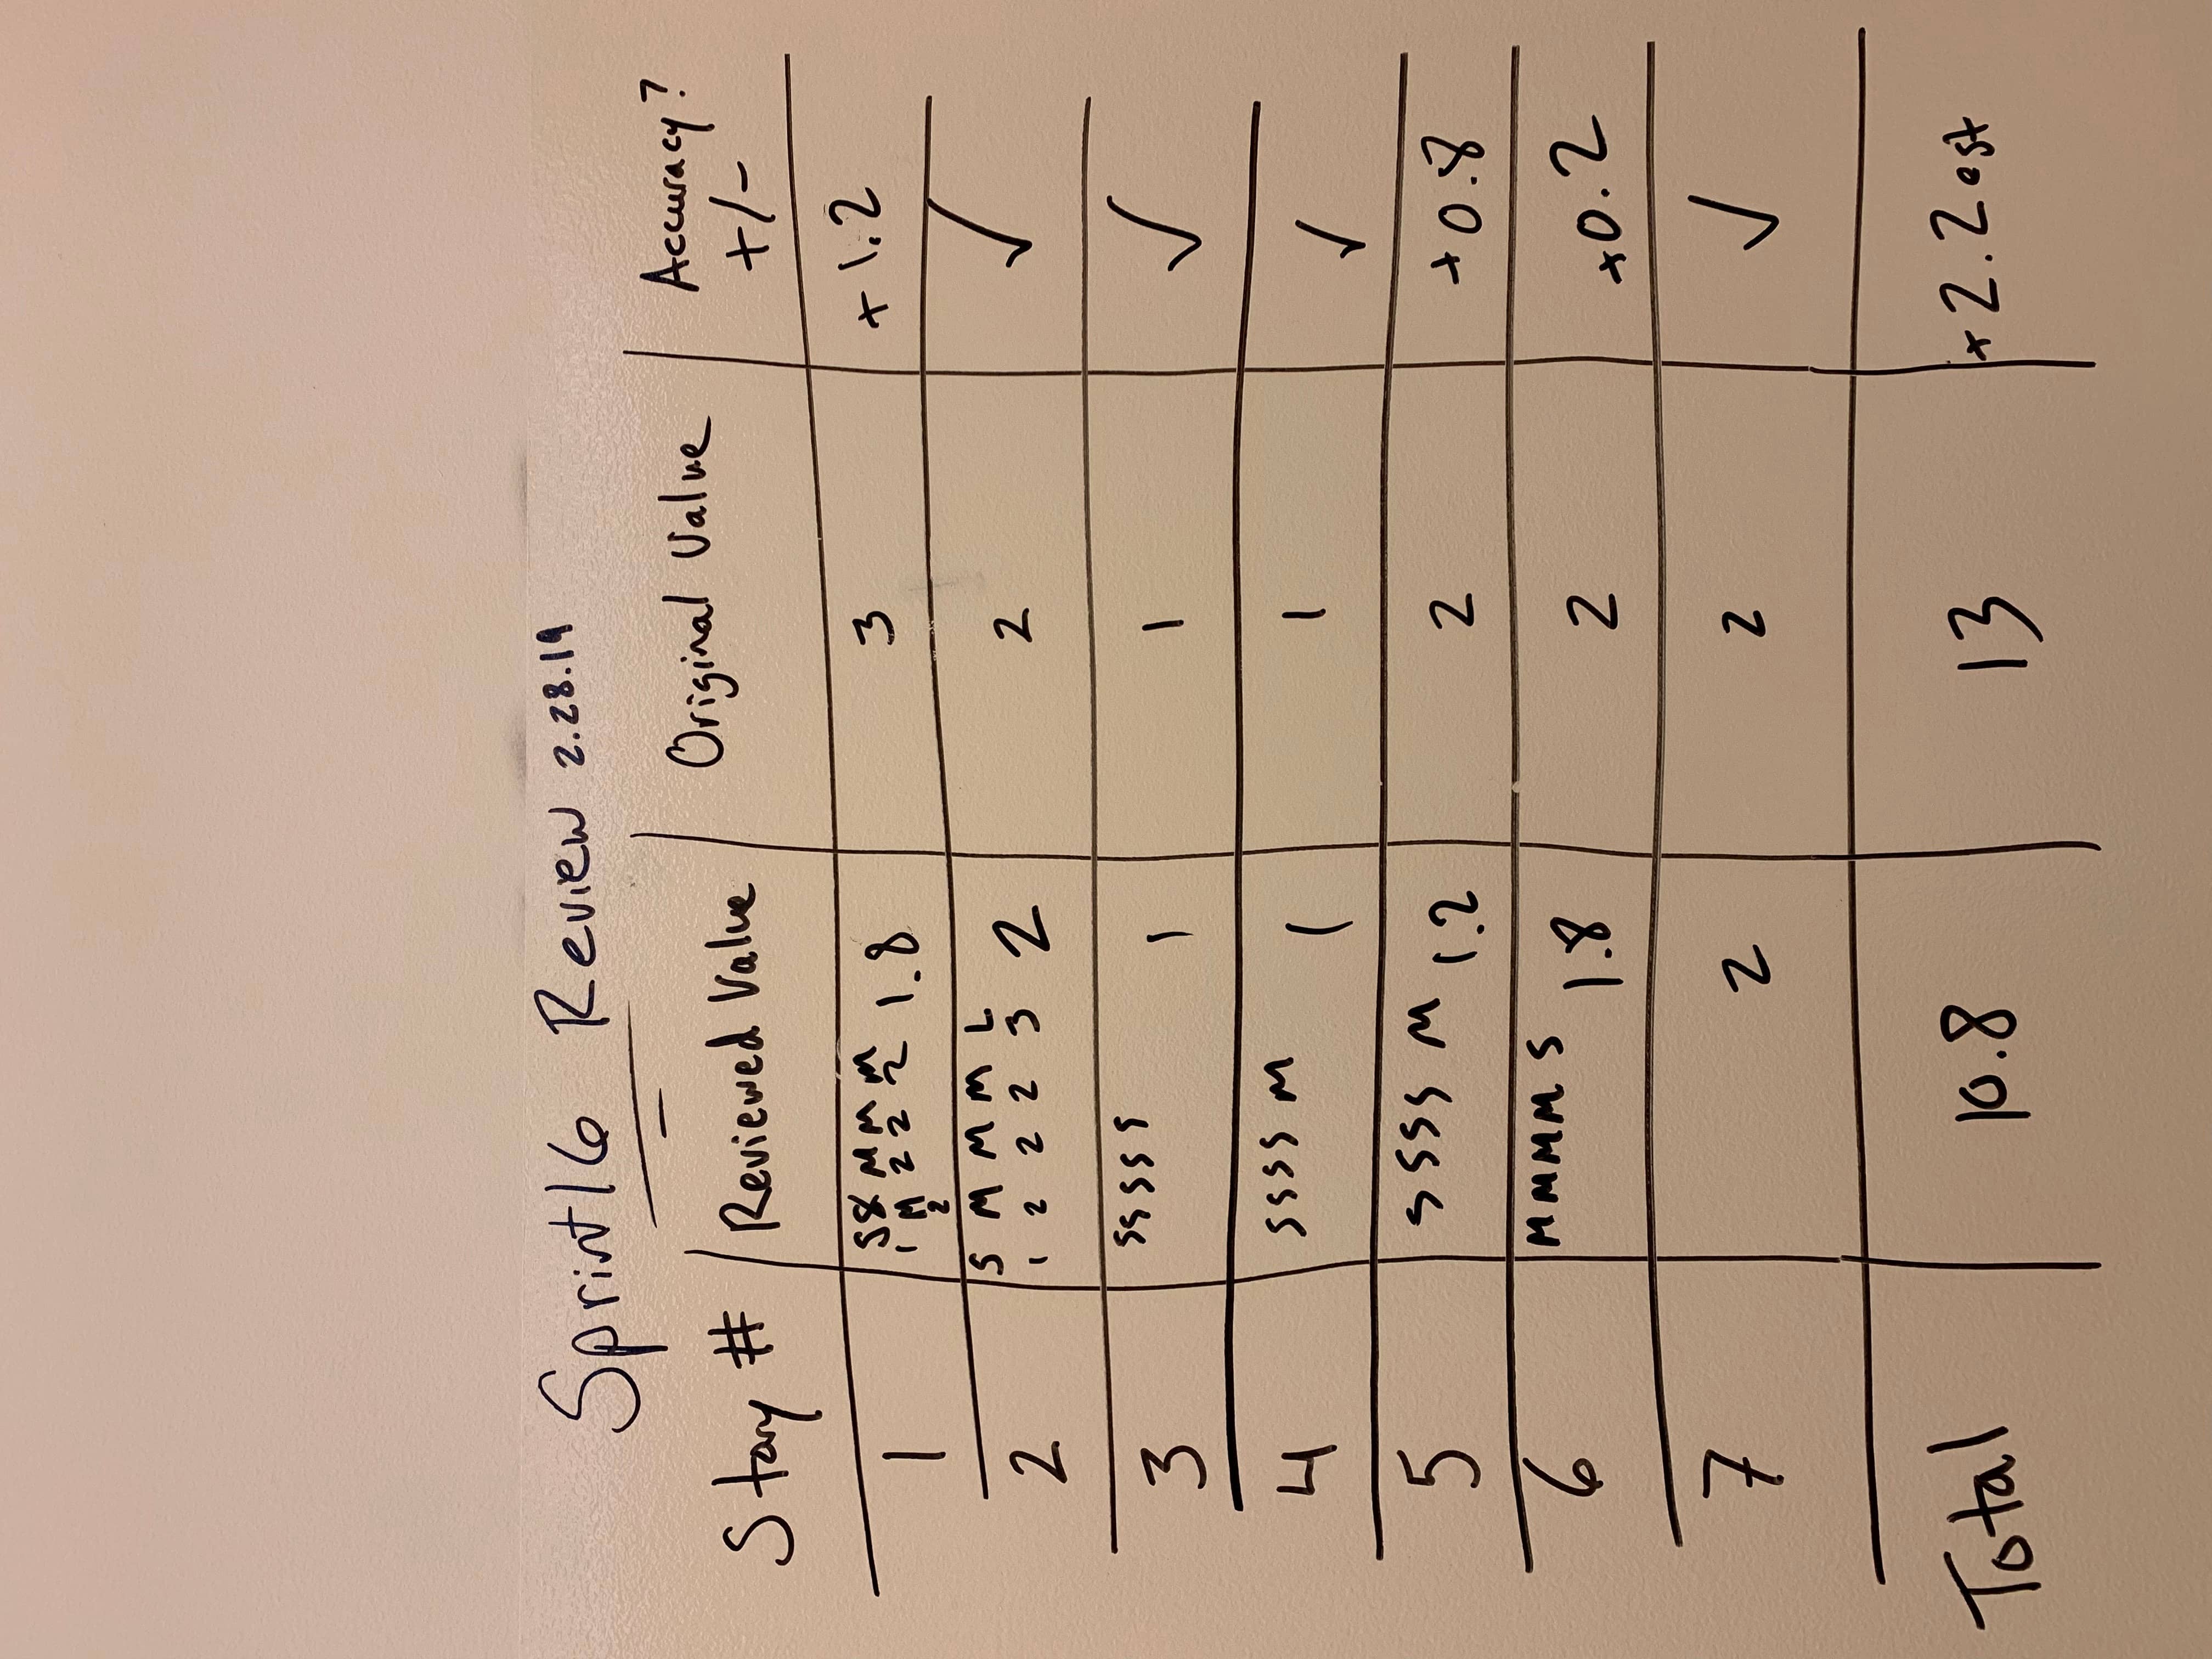 Sprint 16 Review 2.28.19
Story # Reviewed Value Original Value Accuracy? +/-
S M M M
1 1 M 2 2 2 1.8 3 + 1.2
2
S M M M L
2 1 2 2 2 3 2 2 ✓
S S S S S
3 1 1 ✓
S S S S M
4 1 1 ✓
5 S S S S M 1.2 2 + 0.8
M M M M S
6 1.8 2 +0.2
7 2 2 ✓
Total 10.8 13 + 2.2 est